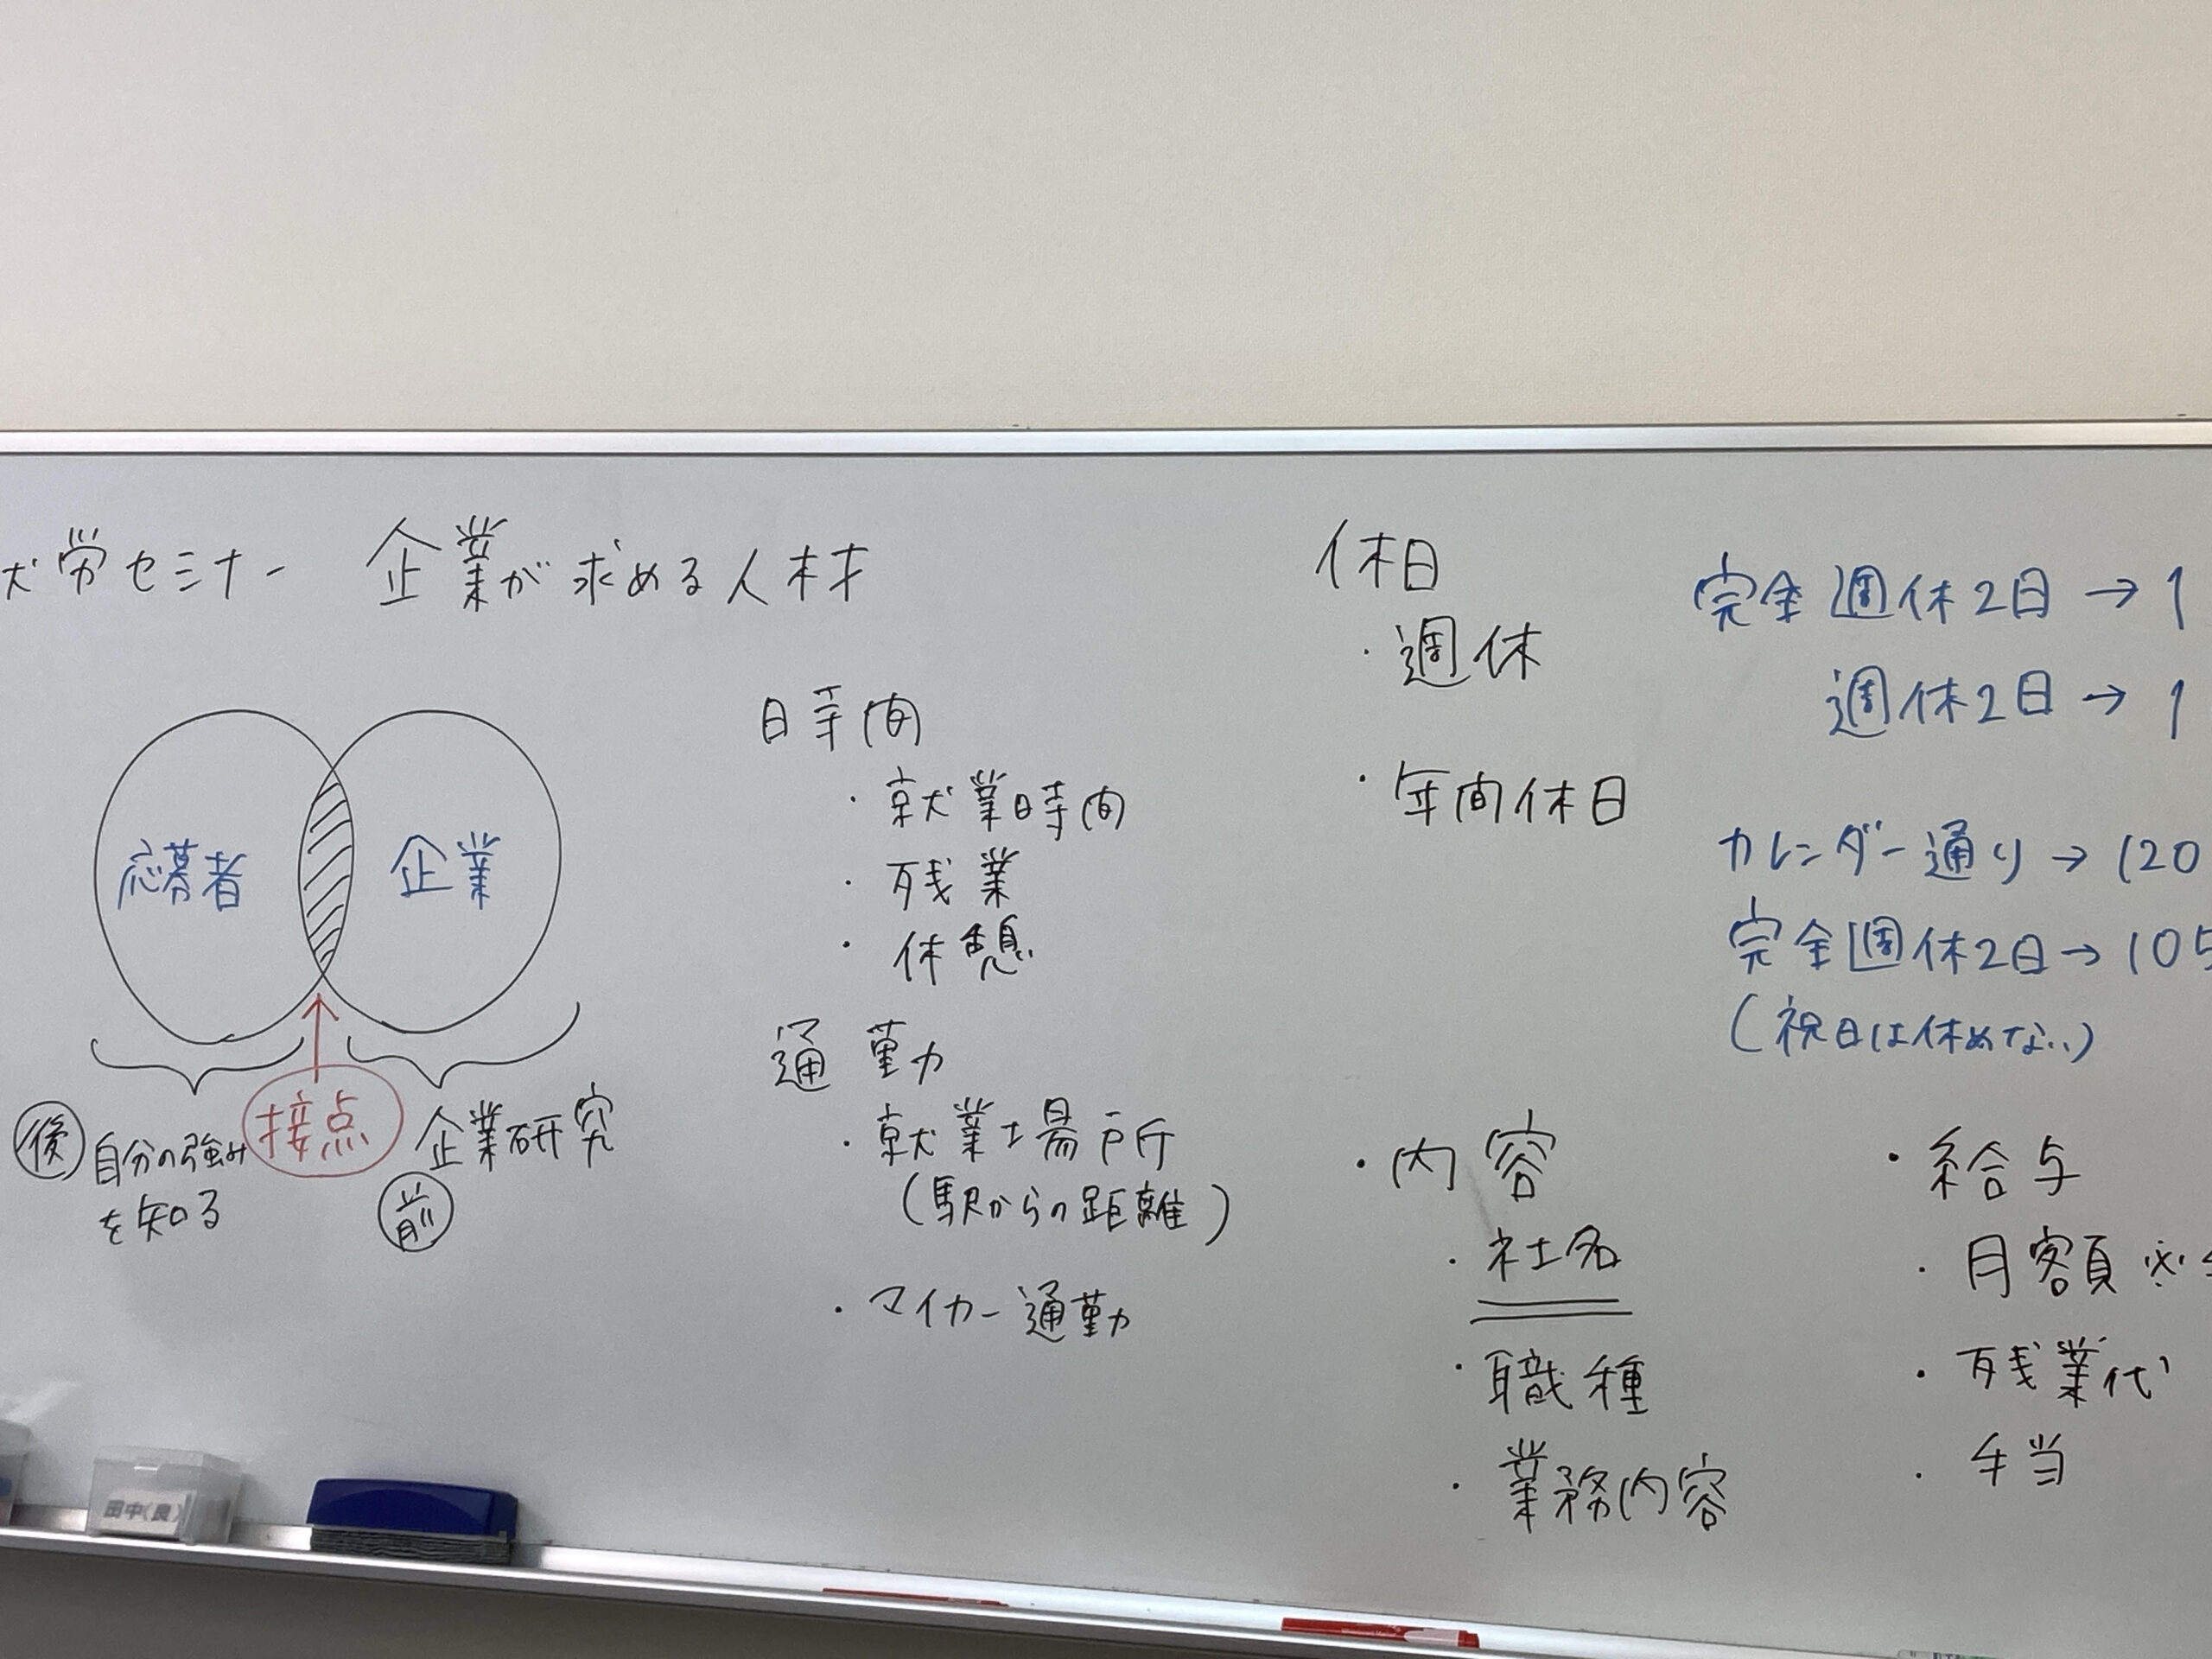 労セミナー 企業が求める人材
応募者
企業
接点
後 自分の強み
を知る
企業研究
前
時間
・就業時間
・残業
・休憩
通勤
・就業場所
（駅からの距離）
・マイカー通勤
休日
・週休
・年間休日
完全週休2日→1
週休2日→1
カレンダー通り→120
完全週休2日→105
（祝日は休めない）
・内容
・社名
・職種
・業務内容
・給与
・月額 ※
・残業代
・手当
田中(良)